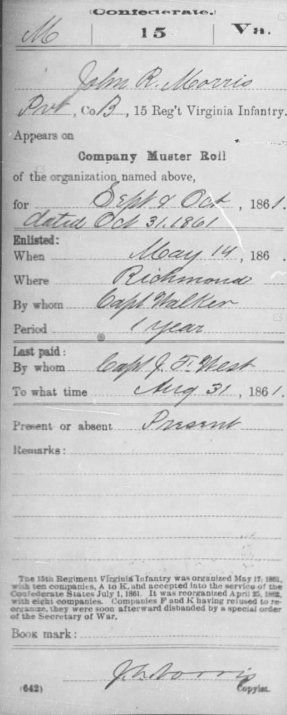 (Confederate.)
M 15 Va.
John R. Morris
Pvt, Co. B, 15 Reg't Virginia Infantry.
Appears on
Company Muster Roll
of the organization named above,
for Sept & Oct, 1861.
dated Oct 31, 1861
Enlisted:
When May 14, 186 .
Where Richmond
By whom Capt Walker
Period 1 year
Last paid:
By whom Capt J. F. West
To what time Aug 31, 1861.
Present or absent Present
Remarks:
The 15th Regiment Virginia Infantry was organized May 17, 1861,
with ten companies, A to K, and accepted into the service of the
Confederate States July 1, 1861. It was reorganized April 25, 1862,
with eight companies. Companies F and K having refused to re-
organize, they were soon afterward disbanded by a special order
of the Secretary of War.
Book mark:
(642) Copyist.